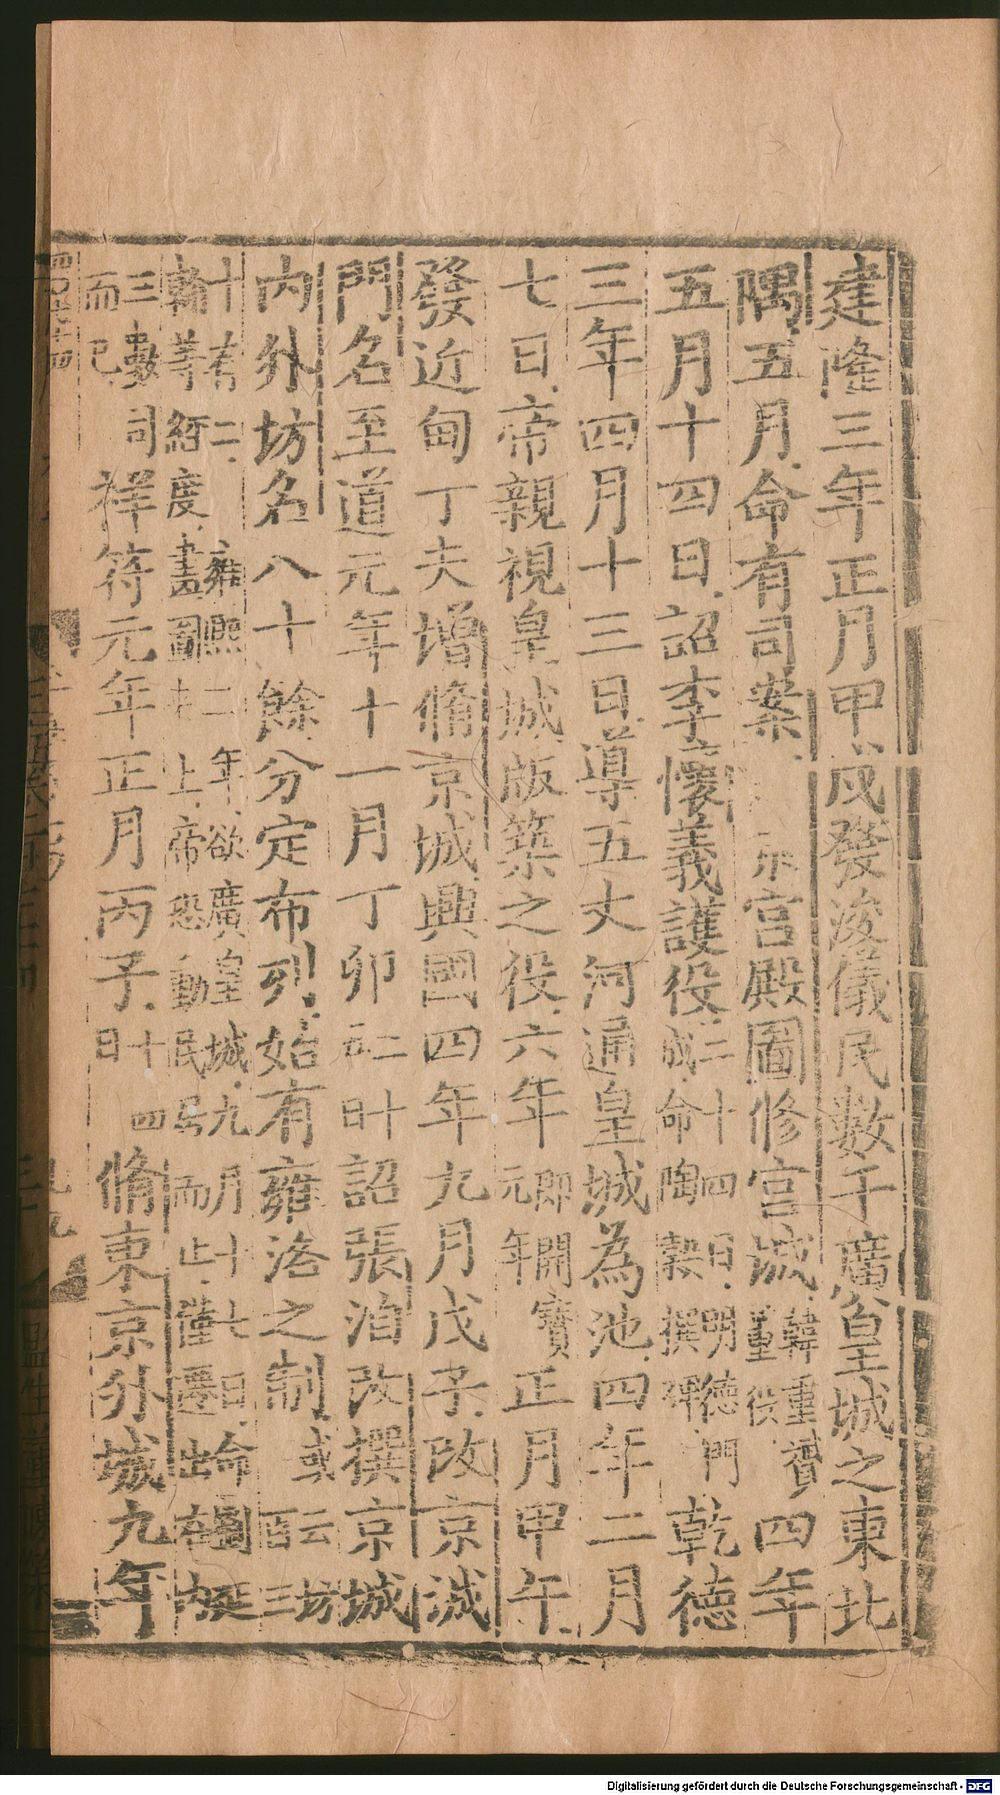 建隆三年正月甲戌發浚儀民數千廣皇城之東北
隅五月命有司案　京宮殿圖修宮城韓重贇董役四年
五月十四日詔李懷義護役二十四日明德門成命陶穀撰碑乾德
三年四月十三日導五丈河通皇城為池四年二月
七日帝親視皇城版築之役六年即開寶元年正月甲午
發近甸丁夫增脩京城興國四年九月戊子改京城
門名至道元年十一月丁卯二十五日詔張洎改撰京城
內外坊名八十餘分定布列始有雍洛之制或云坊百三
十有二雍熙二年欲廣皇城九月十七日命翰等經度畫圖來上帝恐動民居而止僅遷出在內
三數司而已祥符元年正月丙子十四日脩東京外城九年
Digitalisierung gefördert durch die Deutsche Forschungsgemeinschaft - DFG